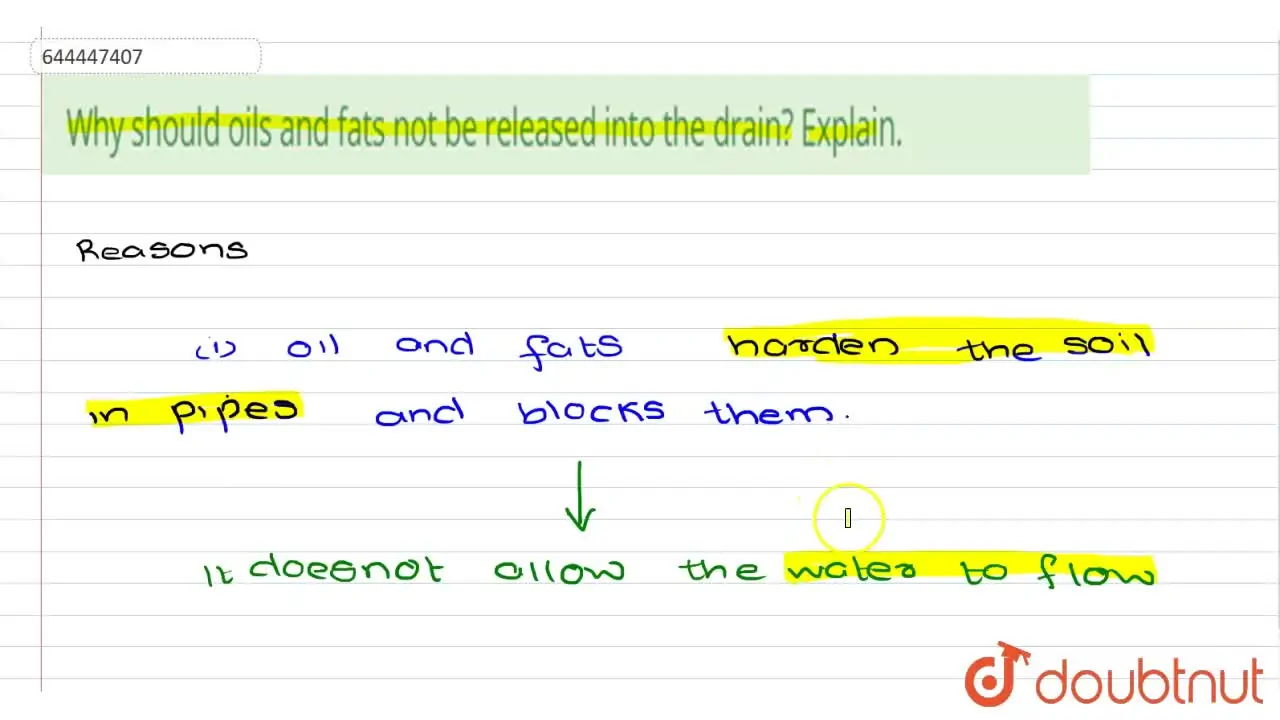 644447407
Why should oils and fats not be released into the drain? Explain.
Reasons
(i) oil and fats harden the soil
in pipes and blocks them.
It doesnot allow the water to flow
doubtnut